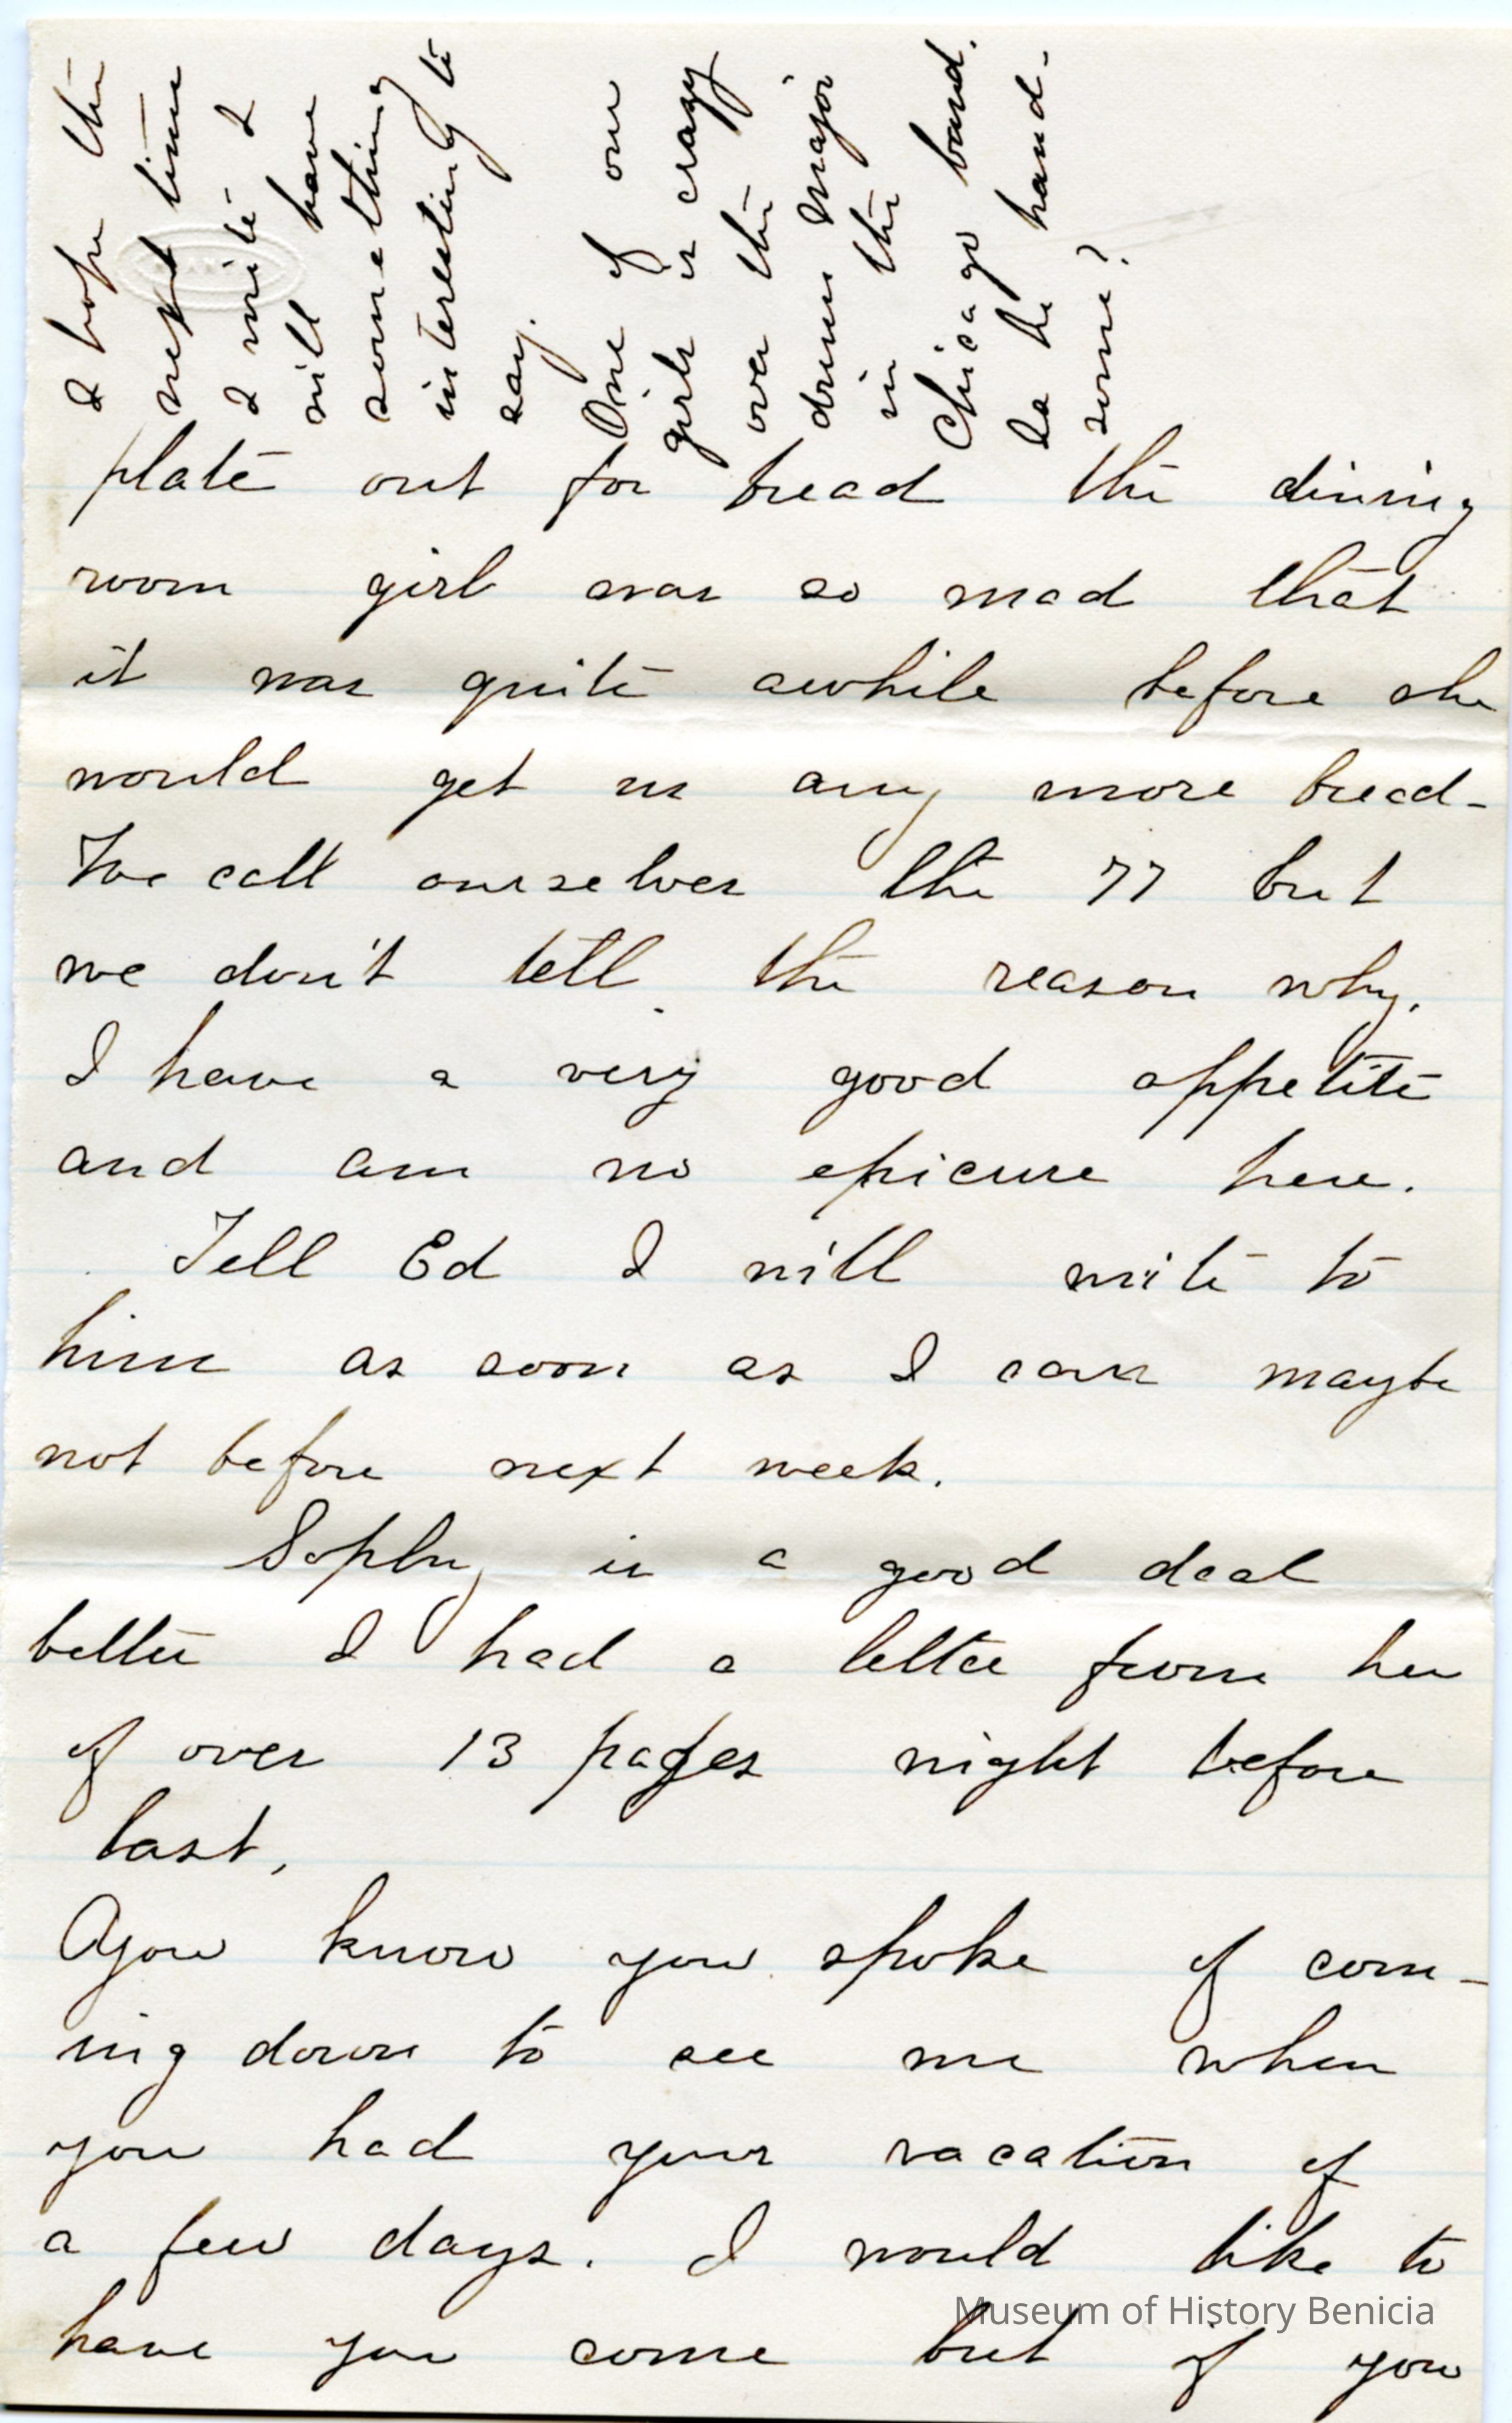 I hope the
next time
I write I
will have
something
interesting to
say.
One of our
girls is crazy
over the
drum major
in the
Chicago band.
Is he hand-
some?
plate out for bread the dining
room girl was so mad that
it was quite awhile before she
would get us any more bread-
We call ourselves the 77 but
we don't tell the reason why.
I have a very good appetite
and am no epicure here.
Tell Ed I will write to
him as soon as I can maybe
not before next week.
Sophy is a good deal
better I had a letter from her
of over 13 pages night before
last,
you know you spoke of com-
ing down to see me when
you had your vacation of
a few days. I would like to
have you come but if you
Museum of History Benicia